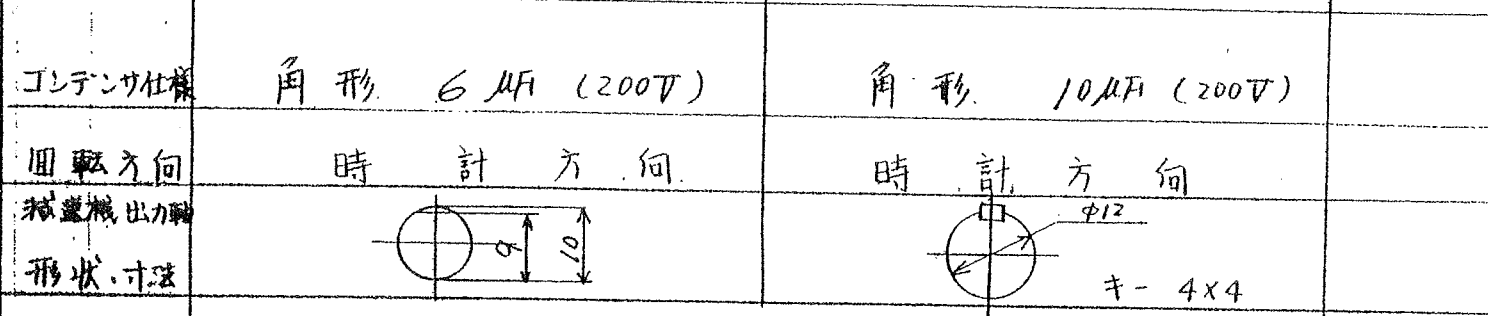 コンデンサ仕様 角形. 6 μF (200V) 角形. 10μF (200V)
回転方向 時計方向. 時計方向
減速機出力軸 φ12
形状・寸法 9 10 キー 4×4